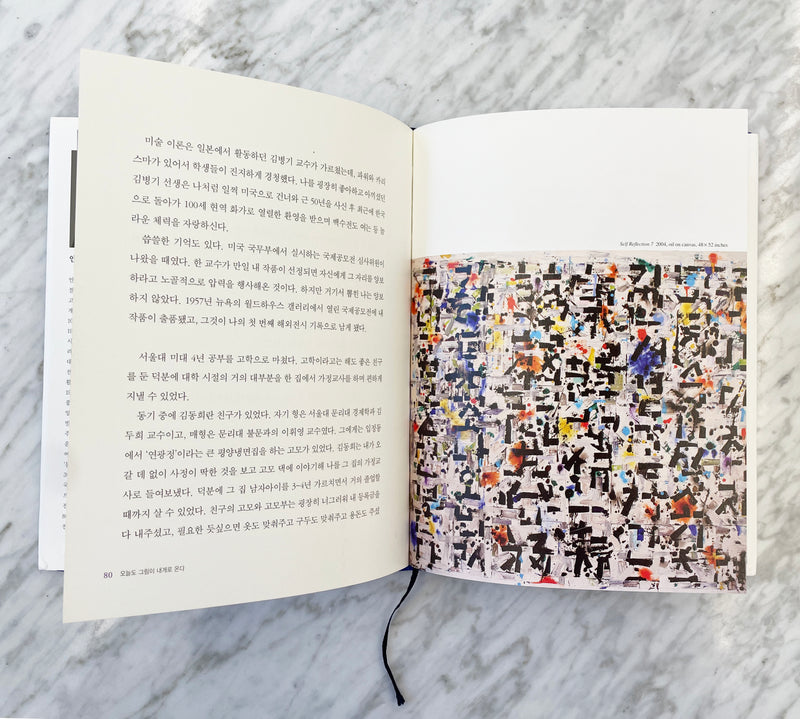 미술 이론은 일본에서 활동하던 김병기 교수가 가르쳤는데, 파워와 카리
스마가 있어서 학생들이 진지하게 경청했다. 나를 굉장히 좋아하고 아끼셨던
김병기 선생은 나처럼 일찍 미국으로 건너와 근 50년을 사신 후 최근에 한국
으로 돌아가 100세 현역 화가로 열렬한 환영을 받으며 백수전도 여는 등 놀
라운 체력을 자랑하신다.
씁쓸한 기억도 있다. 미국 국무부에서 실시하는 국제공모전 심사위원이
나왔을 때였다. 한 교수가 만일 내 작품이 선정되면 자신에게 그 자리를 양보
하라고 노골적으로 압력을 행사해온 것이다. 하지만 거기서 뽑힌 나는 양보
하지 않았다. 1957년 뉴욕의 월드하우스 갤러리에서 열린 국제공모전에 내
작품이 출품됐고, 그것이 나의 첫 번째 해외전시 기록으로 남게 됐다.
서울대 미대 4년 공부를 고학으로 마쳤다. 고학이라고는 해도 좋은 친구
를 둔 덕분에 대학 시절의 거의 대부분을 한 집에서 가정교사를 하며 편하게
지낼 수 있었다.
동기 중에 김동희란 친구가 있었다. 자기 형은 서울대 문리대 경제학과 김
두희 교수이고, 매형은 문리대 불문과의 이휘영 교수였다. 그에게는 입정동
에서 ‘연광정’이라는 큰 평양냉면집을 하는 고모가 있었다. 김동희는 내가 오
갈 데 없이 사정이 딱한 것을 보고 고모 댁에 이야기해 나를 그 집의 가정교
사로 들여보냈다. 덕분에 그 집 남자아이를 3~4년 가르치면서 거의 졸업할
때까지 살 수 있었다. 친구의 고모와 고모부는 굉장히 너그러워 내 등록금을
다 내주셨고, 필요한 듯싶으면 옷도 맞춰주고 구두도 맞춰주고 용돈도 주셨
80 오늘도 그림이 내게로 온다
Self Reflection 7 2004, oil on canvas, 48×52 inches